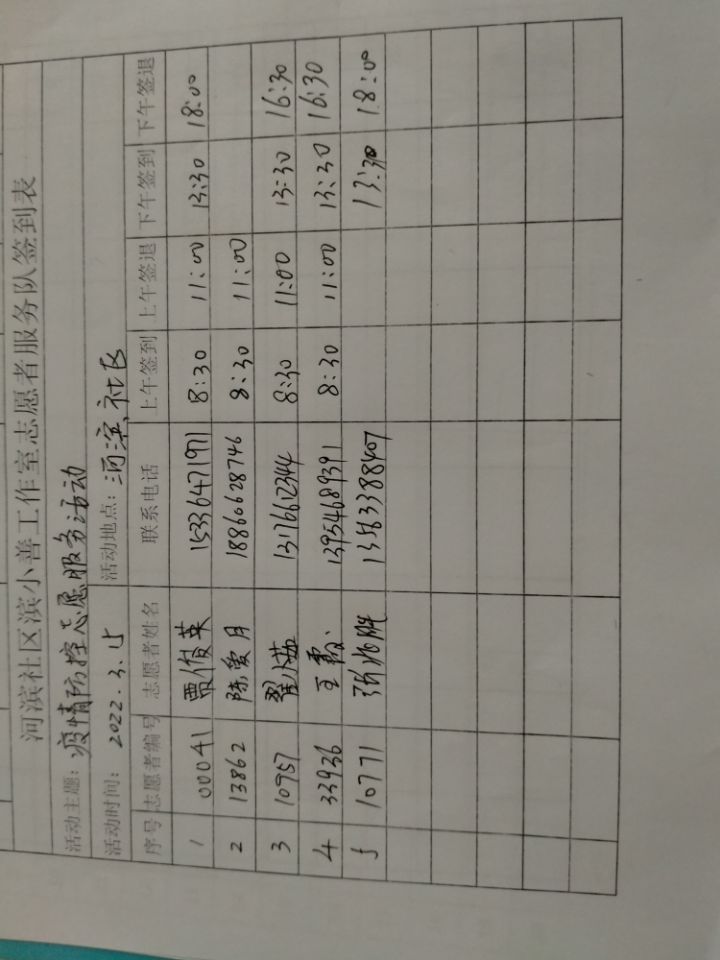 河滨社区滨小善工作室志愿者服务队签到表
活动主题: 疫情防控志愿服务活动
活动时间: 2022.3.15 活动地点: 河滨社区
序号 志愿者编号 志愿者姓名 联系电话 上午签到 上午签退 下午签到 下午签退
1 00041 贾俊英 15336471971 8:30 11:00 13:30 18:00
2 13862 陈爱月 18860628746 8:30 11:00
3 10957 13176612344 8:30 11:00 13:30 16:30
4 33936 王霞 13954689391 8:30 11:00 13:30 16:30
5 10771 13563388407 13:30 18:00